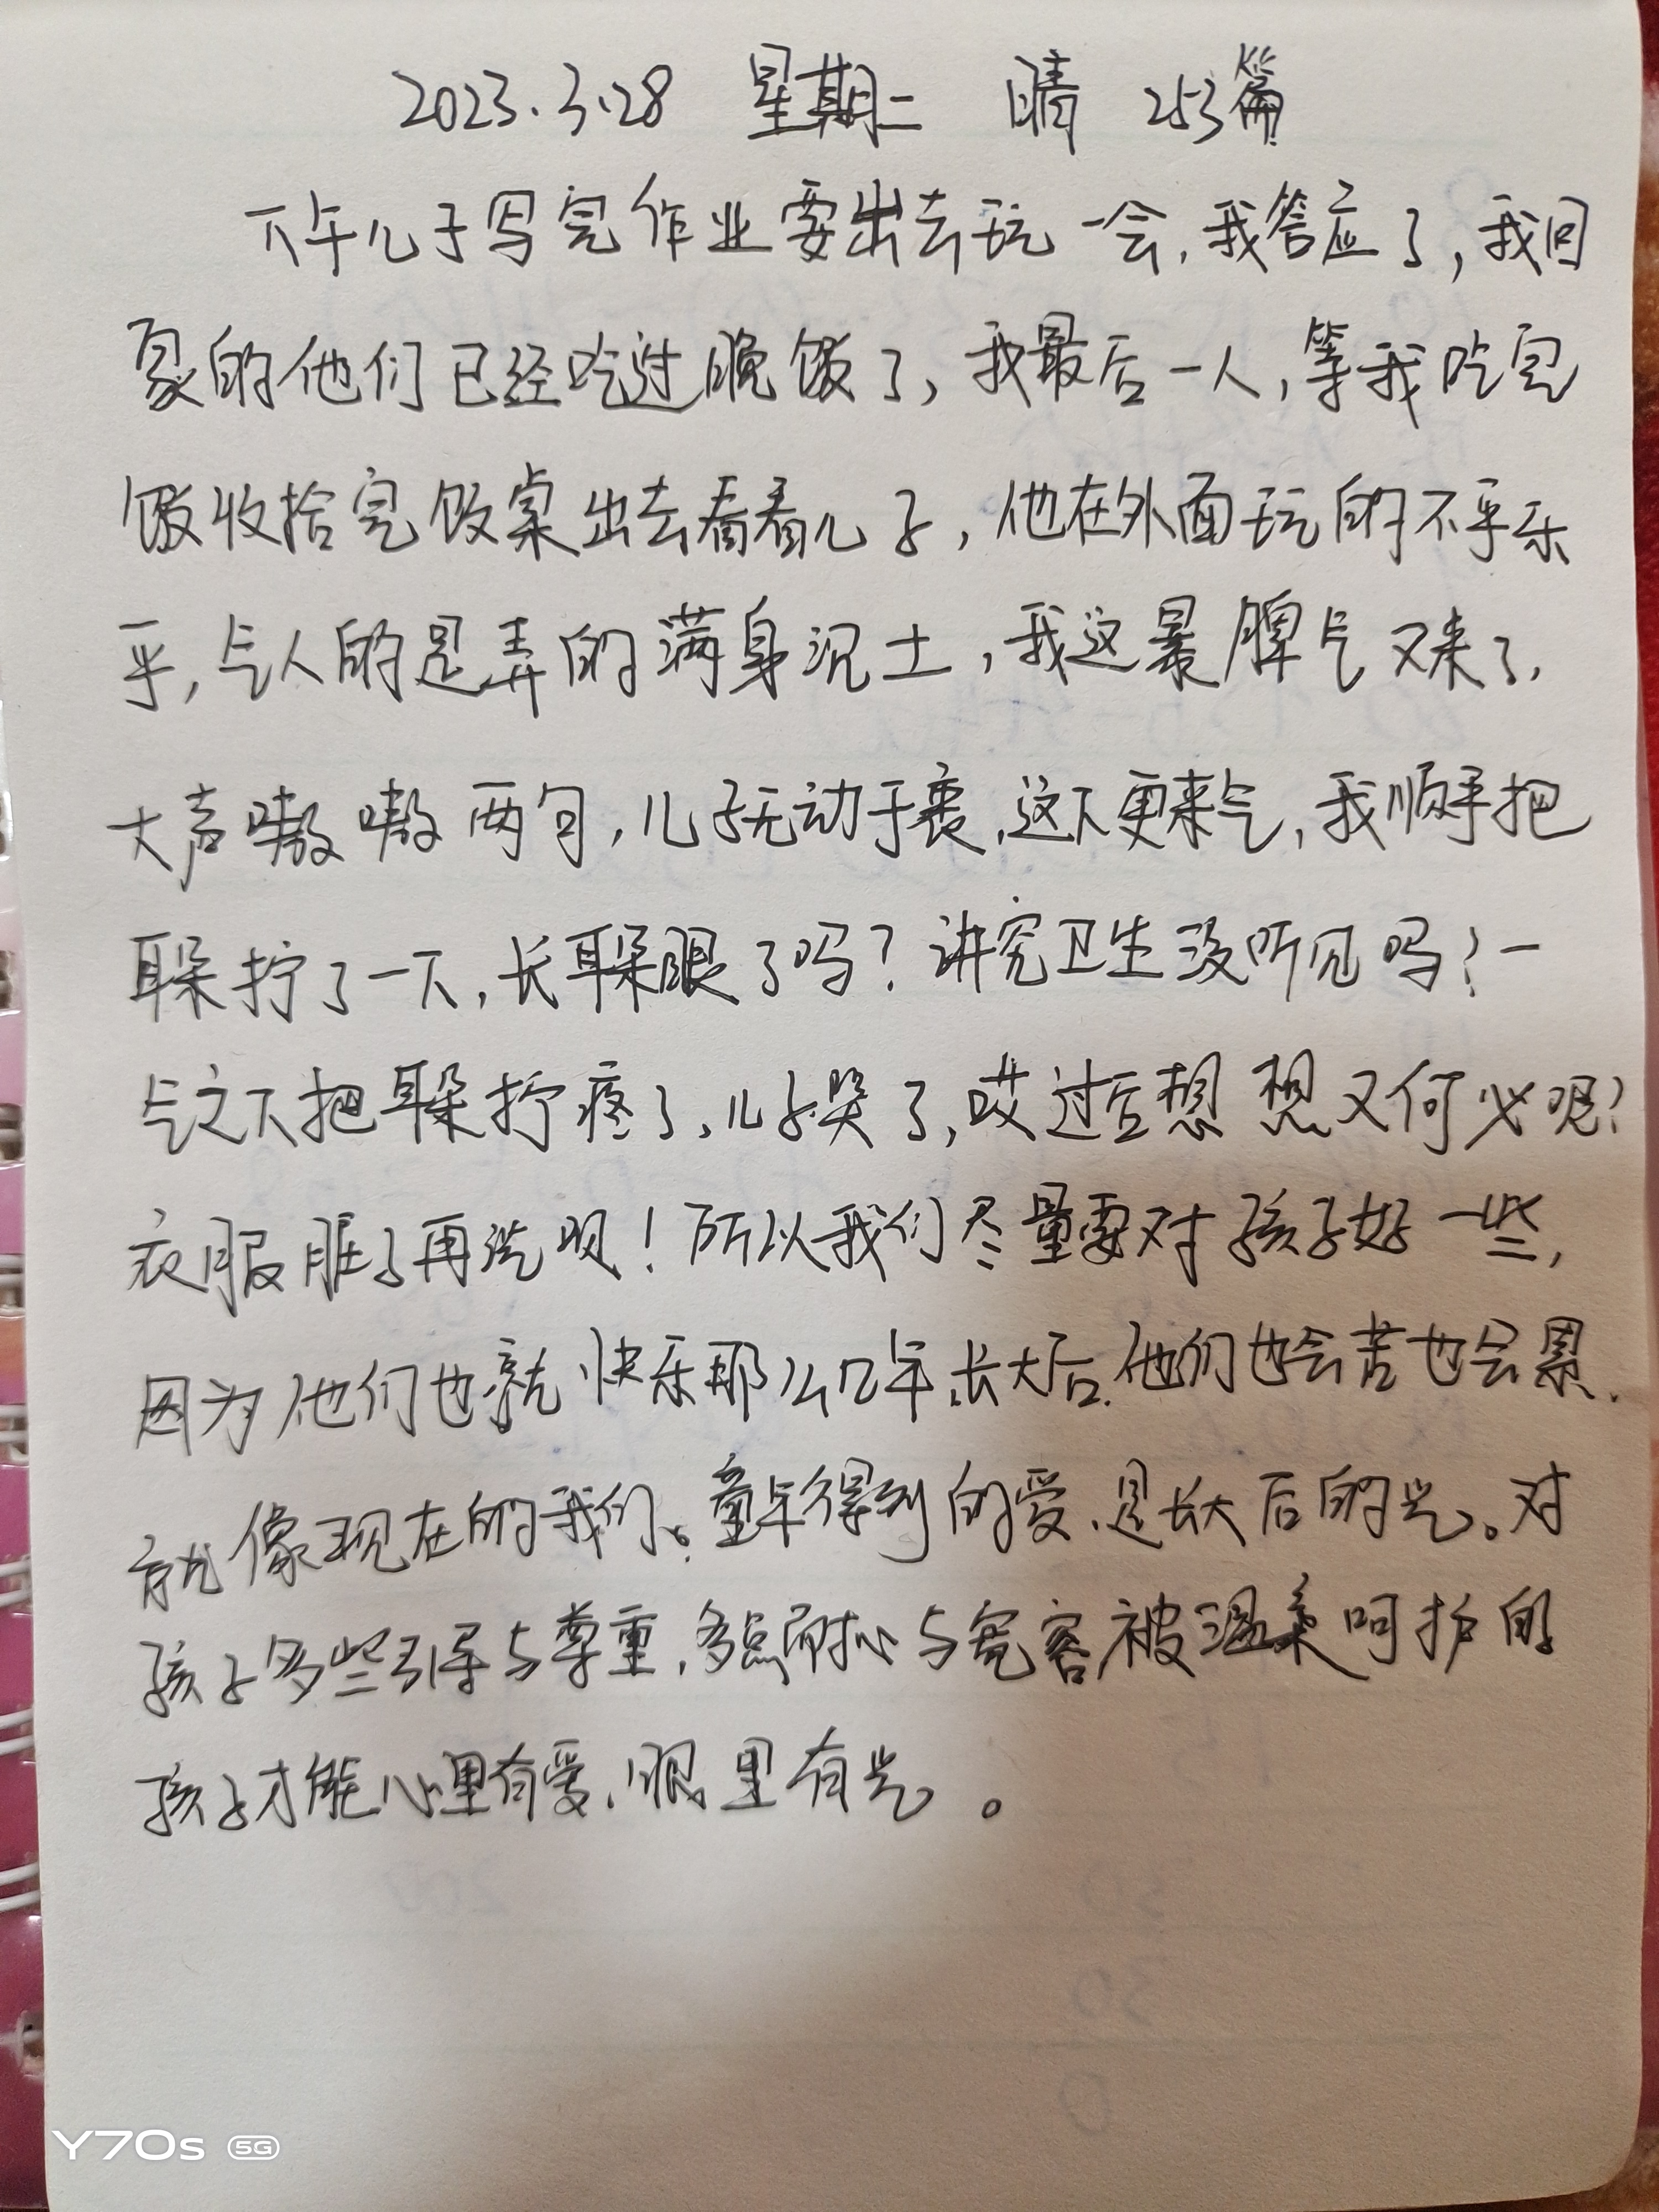 2023.3.28 星期二 晴 253篇
下午儿子写完作业要出去玩一会,我答应了,我回
家的他们已经吃过晚饭了,我最后一人,等我吃完
饭收拾完饭桌出去看看儿子,他在外面玩的不乎乐
乎,气人的是弄的满身泥土,我这暴脾气又来了,
大声嗷嗷两句,儿子无动于衷,这下更来气,我顺手把
耳朵拧了一下,长耳朵眼了吗?讲究卫生没听见吗?一
气之下把耳朵拧疼了,儿子哭了,哎过后想想又何必呢?
衣服脏了再洗呗!所以我们尽量要对孩子好一些,
因为他们也就快乐那么几年,长大后,他们也会苦也会累,
就像现在的我们。童年得到的爱,是长大后的光。对
孩子多些引导与尊重,多点耐心与宽容,被温柔呵护的
孩子才能心里有爱,眼里有光。
Y70s 5G